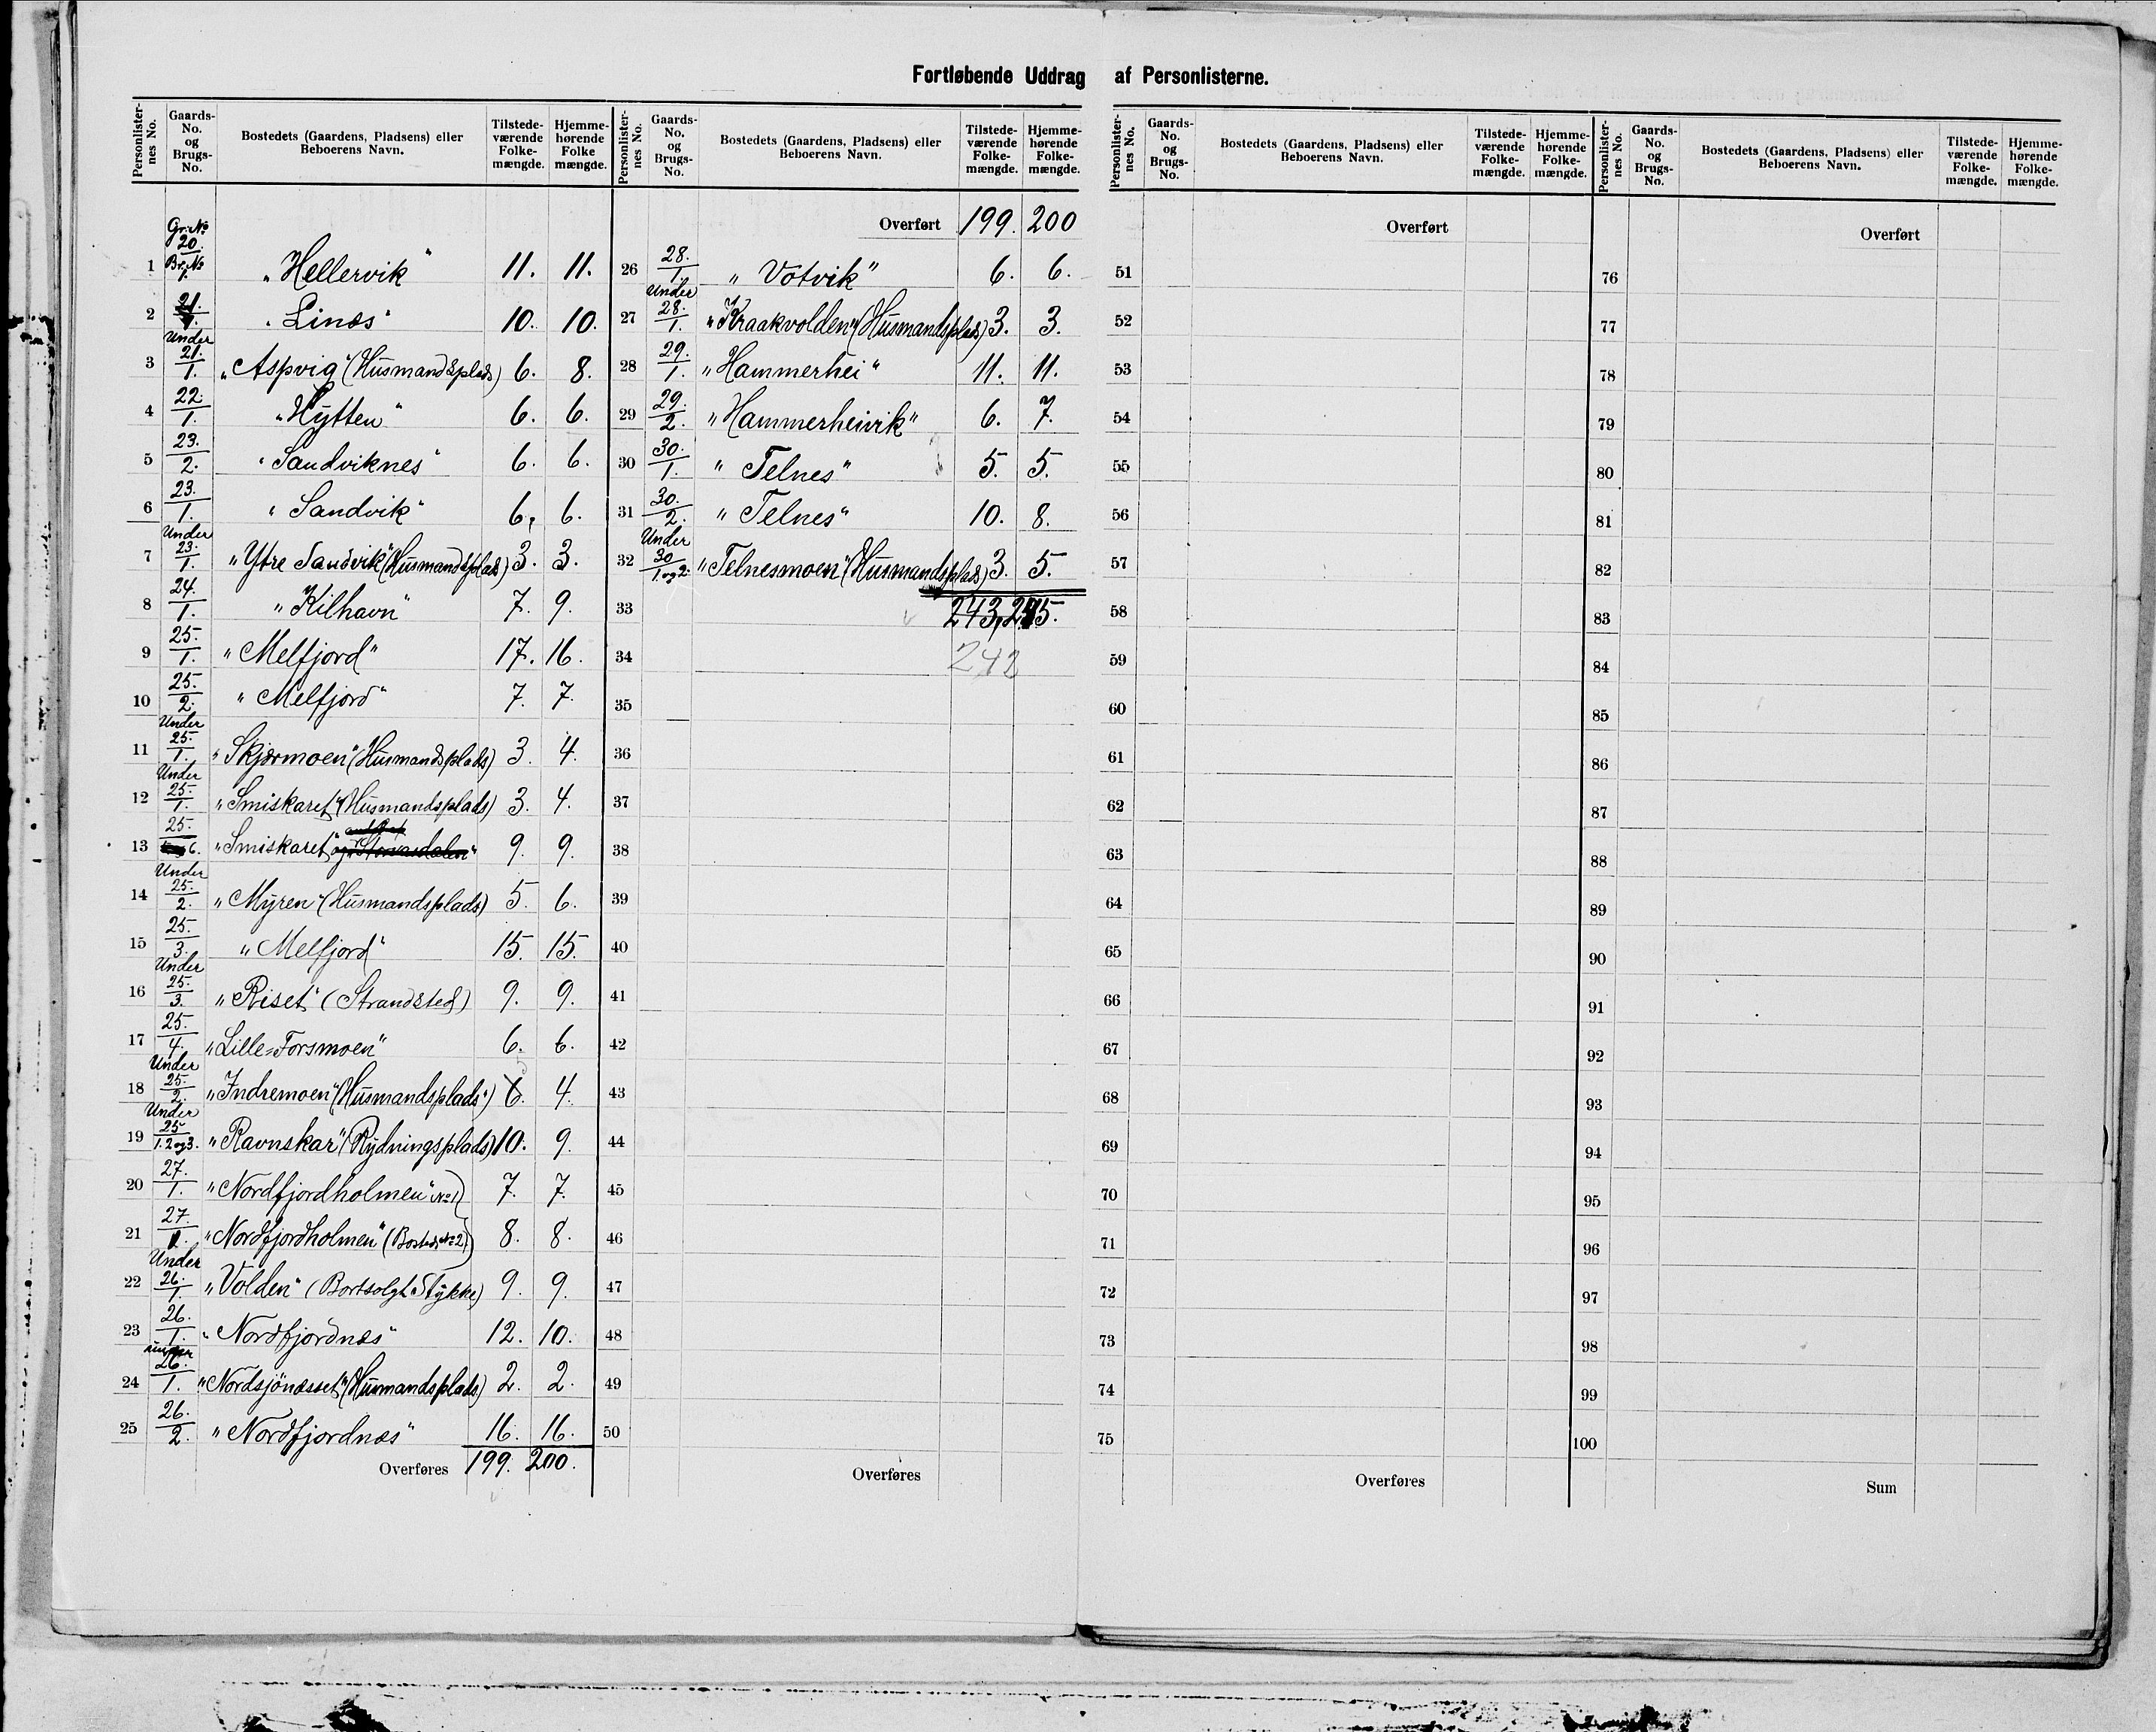 Fortløbende Uddrag af Personlisterne.
Personlister-nes No. Gaards-No. og Brugs-No. Bostedets (Gaardens, Pladsens) eller Beboerens Navn. Tilstede-værende Folke-mængde. Hjemme-hørende Folke mængde.
Gr. No 20. Br. No 1.
1 „Hellervik“ 11. 11.
2 21./1. „Linæs“ 10. 10.
3 Under 21./1. „Aspvig“ (Husmandsplads) 6. 8.
4 22./1. „Hytten“ 6. 6.
5 23./2. „Sandviknes“ 6. 6.
6 23./1. „Sandvik“ 6, 6.
7 Under 23./1. „Ytre Sandvik“ (Husmandsplads) 3. 3.
8 24./1. „Kilhavn“ 7. 9.
9 25./1. „Melfjord“ 17. 16.
10 25./2. „Melfjord“ 7. 7.
11 Under 25./1. „Skjærmoen“ (Husmandsplads) 3. 4.
12 Under 25./1. „Smiskaret“ (Husmandsplads) 3. 4.
13 25./6. „Smiskaret“ og „Storvasdalen“ 9. 9.
14 Under 25./2. „Myren“ (Husmandsplads) 5. 6.
15 25./3. „Melfjord“ 15. 15.
16 Under 25./3. „Riset“ (Strandsted) 9. 9.
17 25./4. „Lille-Forsmoen“ 6. 6.
18 Under 25./2. „Indremoen“ (Husmandsplads) 6. 4.
19 Under 25/1. 2 og 3. „Ravnskar“ (Rydningsplads) 10. 9.
20 27./1. „Nordfjordholmen“ No 1) 7. 7.
21 27./1. „Nordfjordholmen“ (Bosted No 2) 8. 8.
22 Under 26./1. „Volden“ (Bortsolgt Stykke) 9. 9.
23 26./1. „Nordfjordnæs“ 12. 10.
24 under 26./1. „Nordsjönæsset“ (Husmandsplads) 2. 2.
25 26./2. „Nordfjordnæs“ 16. 16.
Overføres 199. 200.
Personlister-nes No. Gaards-No. og Brugs-No. Bostedets (Gaardens, Pladsens) eller Beboerens Navn. Tilstede-værende Folke-mængde. Hjemme-hørende Folke-mængde.
Overført 199. 200
26 28./1. „Votvik“ 6. 6.
27 Under 28./1. „Kraakvolden“ (Husmandsplads) 3. 3.
28 29./1. „Hammerhei“ 11. 11.
29 29./2. „Hammerheivik“ 6. 7.
30 30./1. „Telnes“ 5. 5.
31 30./2. „Telnes“ 10. 8.
32 Under 30/1. og 2. „Telnesmoen“ (Husmandsplads) 3. 5.
33 243, 245.
34 242
35
36
37
38
39
40
41
42
43
44
45
46
47
48
49
50
Overføres
Personlister-nes No. Gaards-No. og Brugs-No. Bostedets (Gaardens, Pladsens) eller Beboerens Navn. Tilstede-værende Folke-mængde. Hjemme-hørende Folke-mængde.
Overført
51
52
53
54
55
56
57
58
59
60
61
62
63
64
65
66
67
68
69
70
71
72
73
74
75
Overføres
Personlister-nes No. Gaards-No. og Brugs-No. Bostedets (Gaardens, Pladsens) eller Beboerens Navn. Tilstede-værende Folke-mængde. Hjemme-hørende Folke-mængde.
Overført
76
77
78
79
80
81
82
83
84
85
86
87
88
89
90
91
92
93
94
95
96
97
98
99
100
Sum